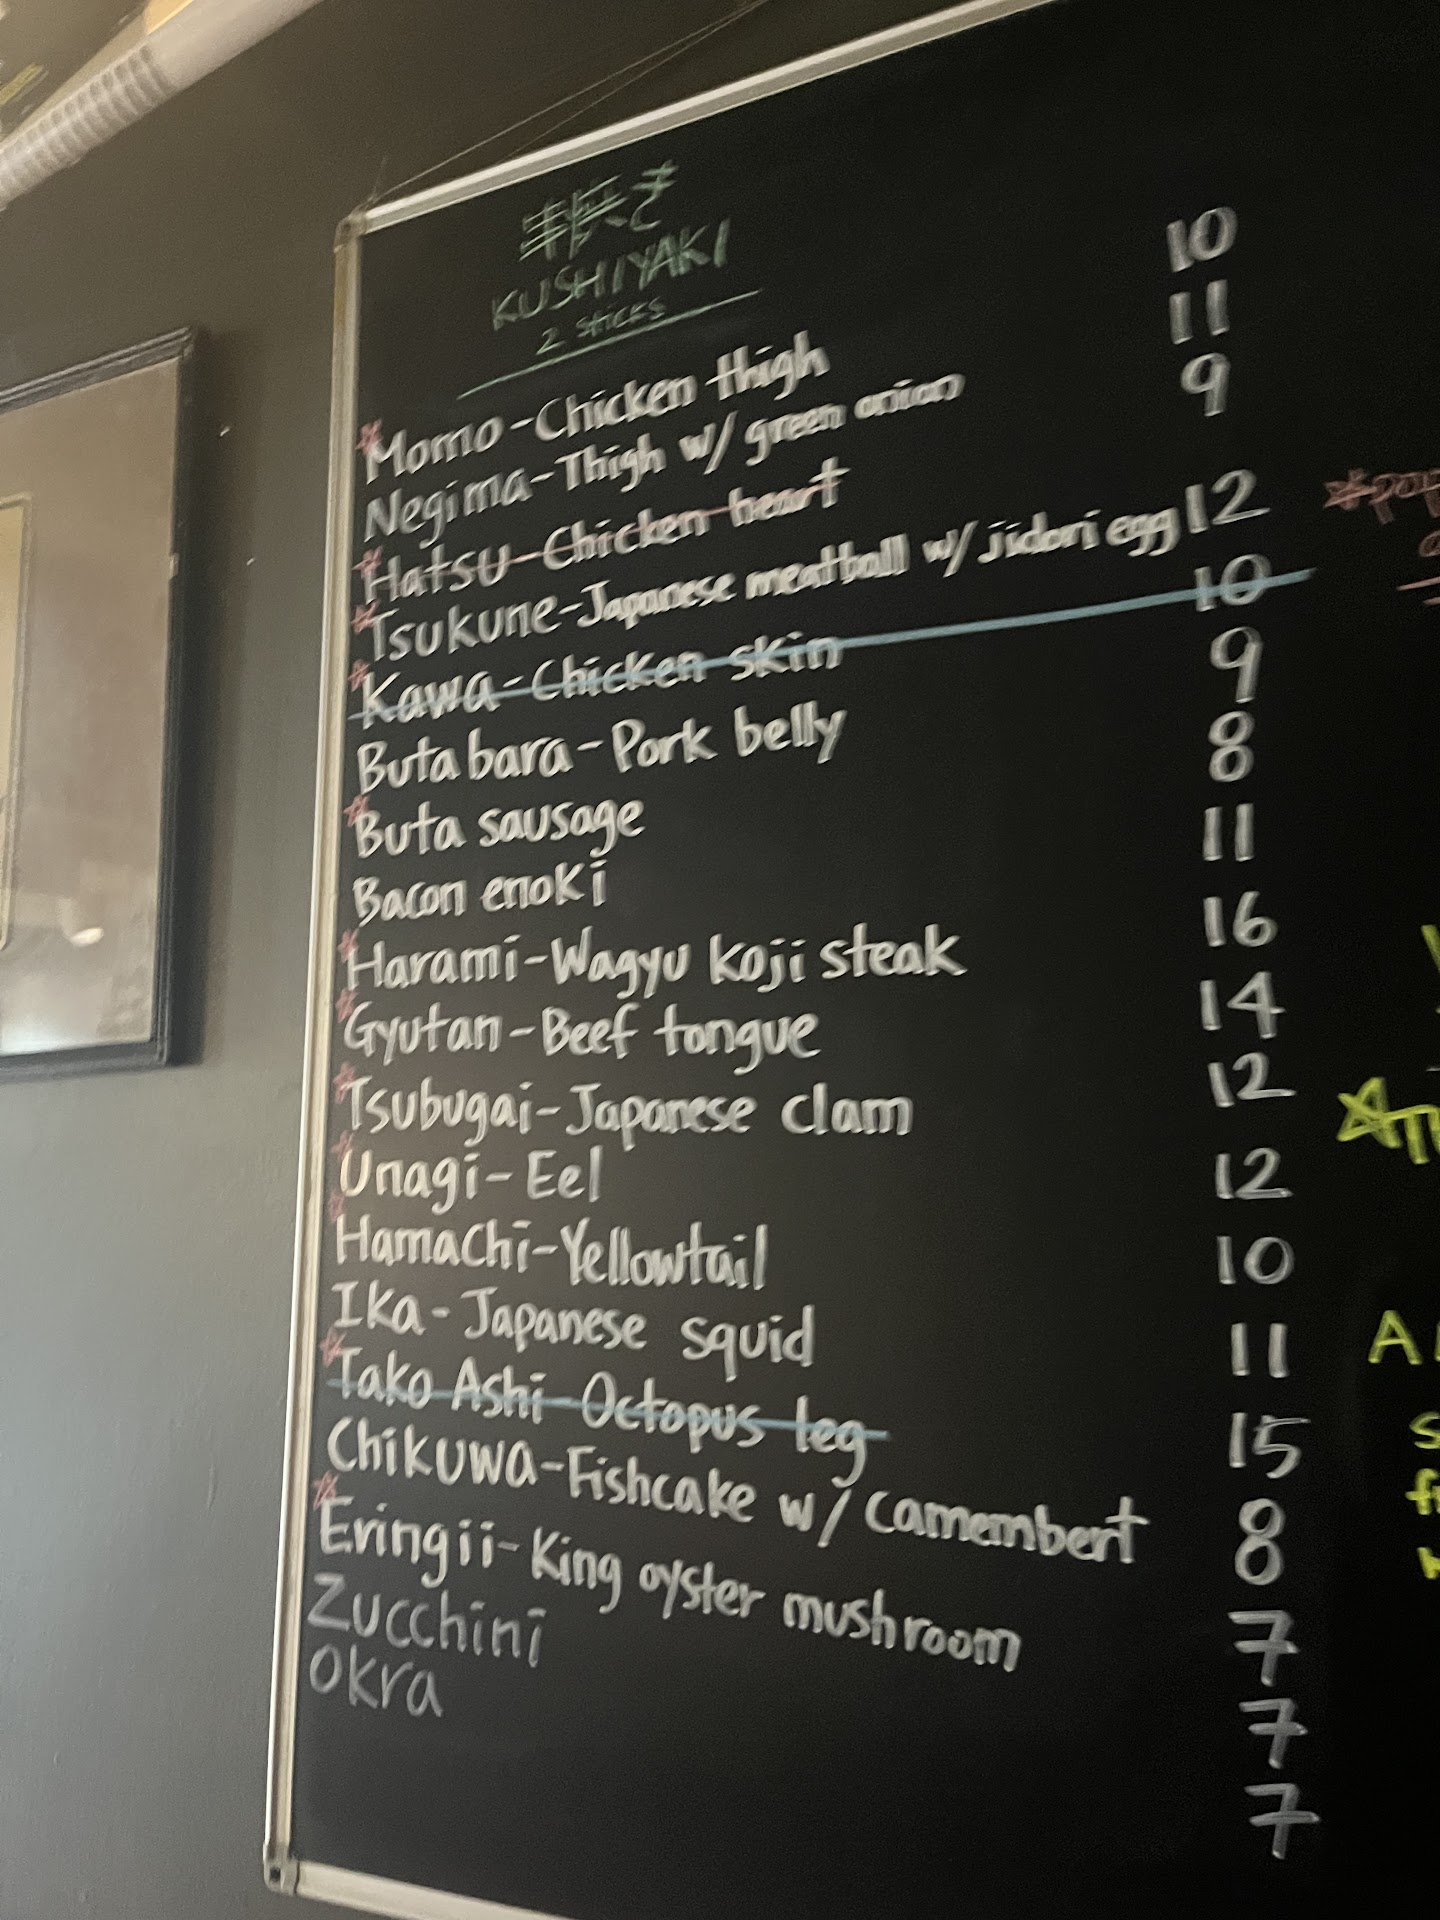 串焼き
KUSHIYAKI
2 sticks
Momo-Chicken thigh 10
Negima-Thigh w/ green onion 11
Hatsu-Chicken heart 9
Tsukune-Japanese meatball w/ jidori egg 12
Kawa-Chicken skin 10
Butabara-Pork belly 9
Buta sausage 8
Bacon enoki 11
Harami-Wagyu koji steak 16
Gyutan-Beef tongue 14
Tsubugai-Japanese clam 12
Unagi-Eel 12
Hamachi-Yellowtail 10
Ika-Japanese squid 11
Tako Ashi-Octopus leg 15
Chikuwa-Fishcake w/ Camembert 8
Eringii-King oyster mushroom 7
Zucchini 7
Okra 7